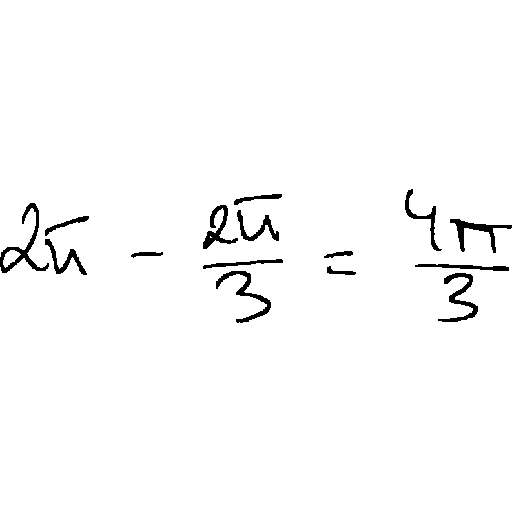 2π - \frac{2π}{3} = \frac{4π}{3}